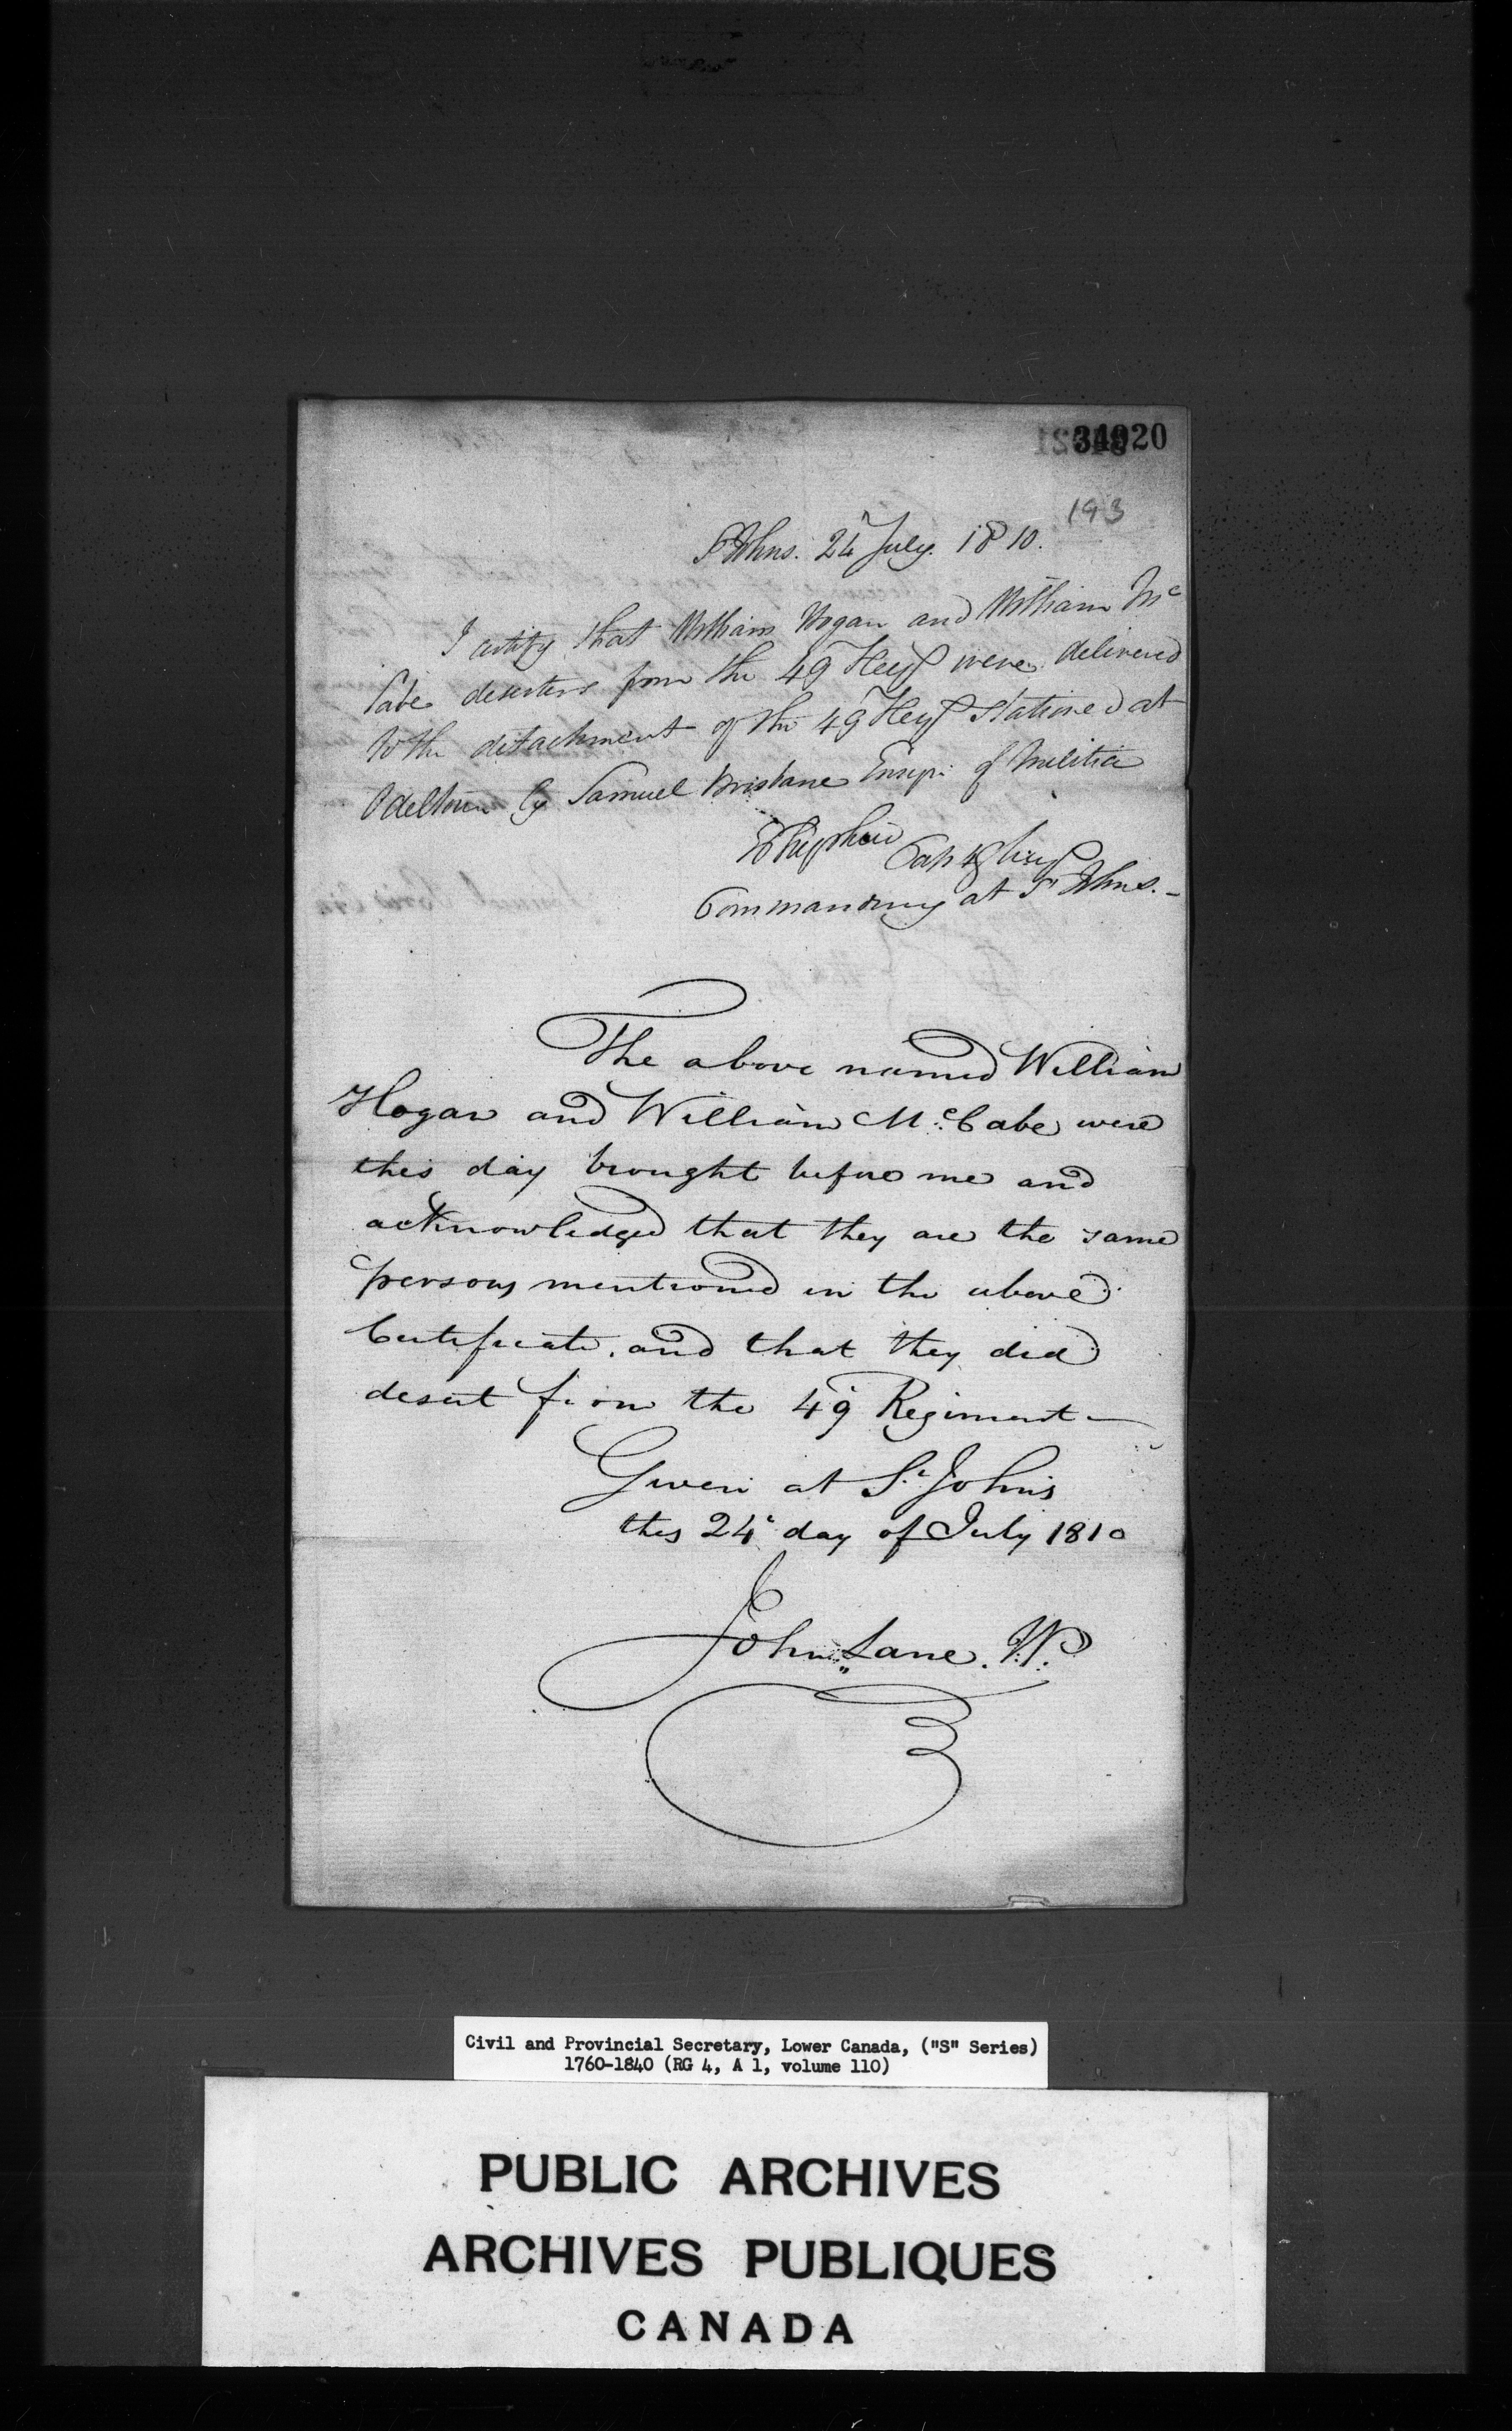 34920
193
St Johns. 24 July. 1810.
I certify that William Hogan and William Mc
Cabe deserters from the 49 Regt were delivered
to the detachment of the 49 Regt stationed at
Odeltown by Samuel Brisbane Ensign of Militia
Capt 49 Regt
Commanding at St Johns.-
The above named William
Hogan and William Mc.Cabe were
this day brought before me and
acknowledged that they are the same
persons mentioned in the above
Certificate, and that they did
desert from the 49 Regiment —
Given at St. Johns
this 24 day of July 1810
John Lane. J.P.
Civil and Provincial Secretary, Lower Canada, ("S" Series)
1760-1840 (RG 4, A 1, volume 110)
PUBLIC ARCHIVES
ARCHIVES PUBLIQUES
CANADA